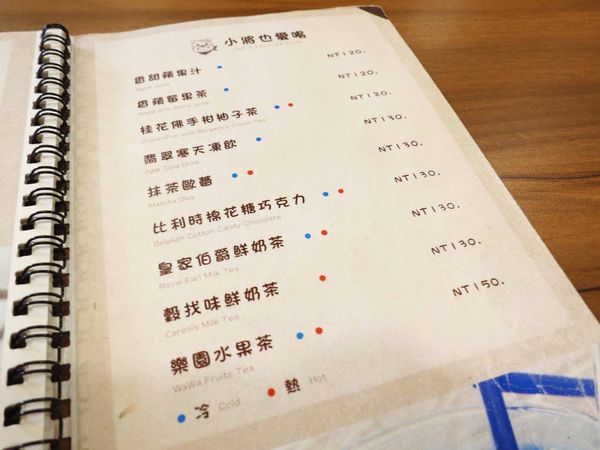 小將也愛喝
香甜蘋果汁 NT120.
Apple Juice
香蘋莓果茶 NT120.
Apple with Berry Juice
桂花佛手柑柚子茶 NT120.
Osmanthus with Bergamot Pomelo Tea
翡翠寒天凍飲 NT130.
Agar Cold Drink
抹茶歐蕾 NT130.
Matcha Olay
比利時棉花糖巧克力 NT130.
Belgium Cotton Candy Chocolate
皇家伯爵鮮奶茶 NT130.
Royal Earl Milk Tea
穀找味鮮奶茶 NT130.
Cereals Milk Tea
樂園水果茶 NT150.
WaWa Fruits Tea
冷 Cold 熱 Hot